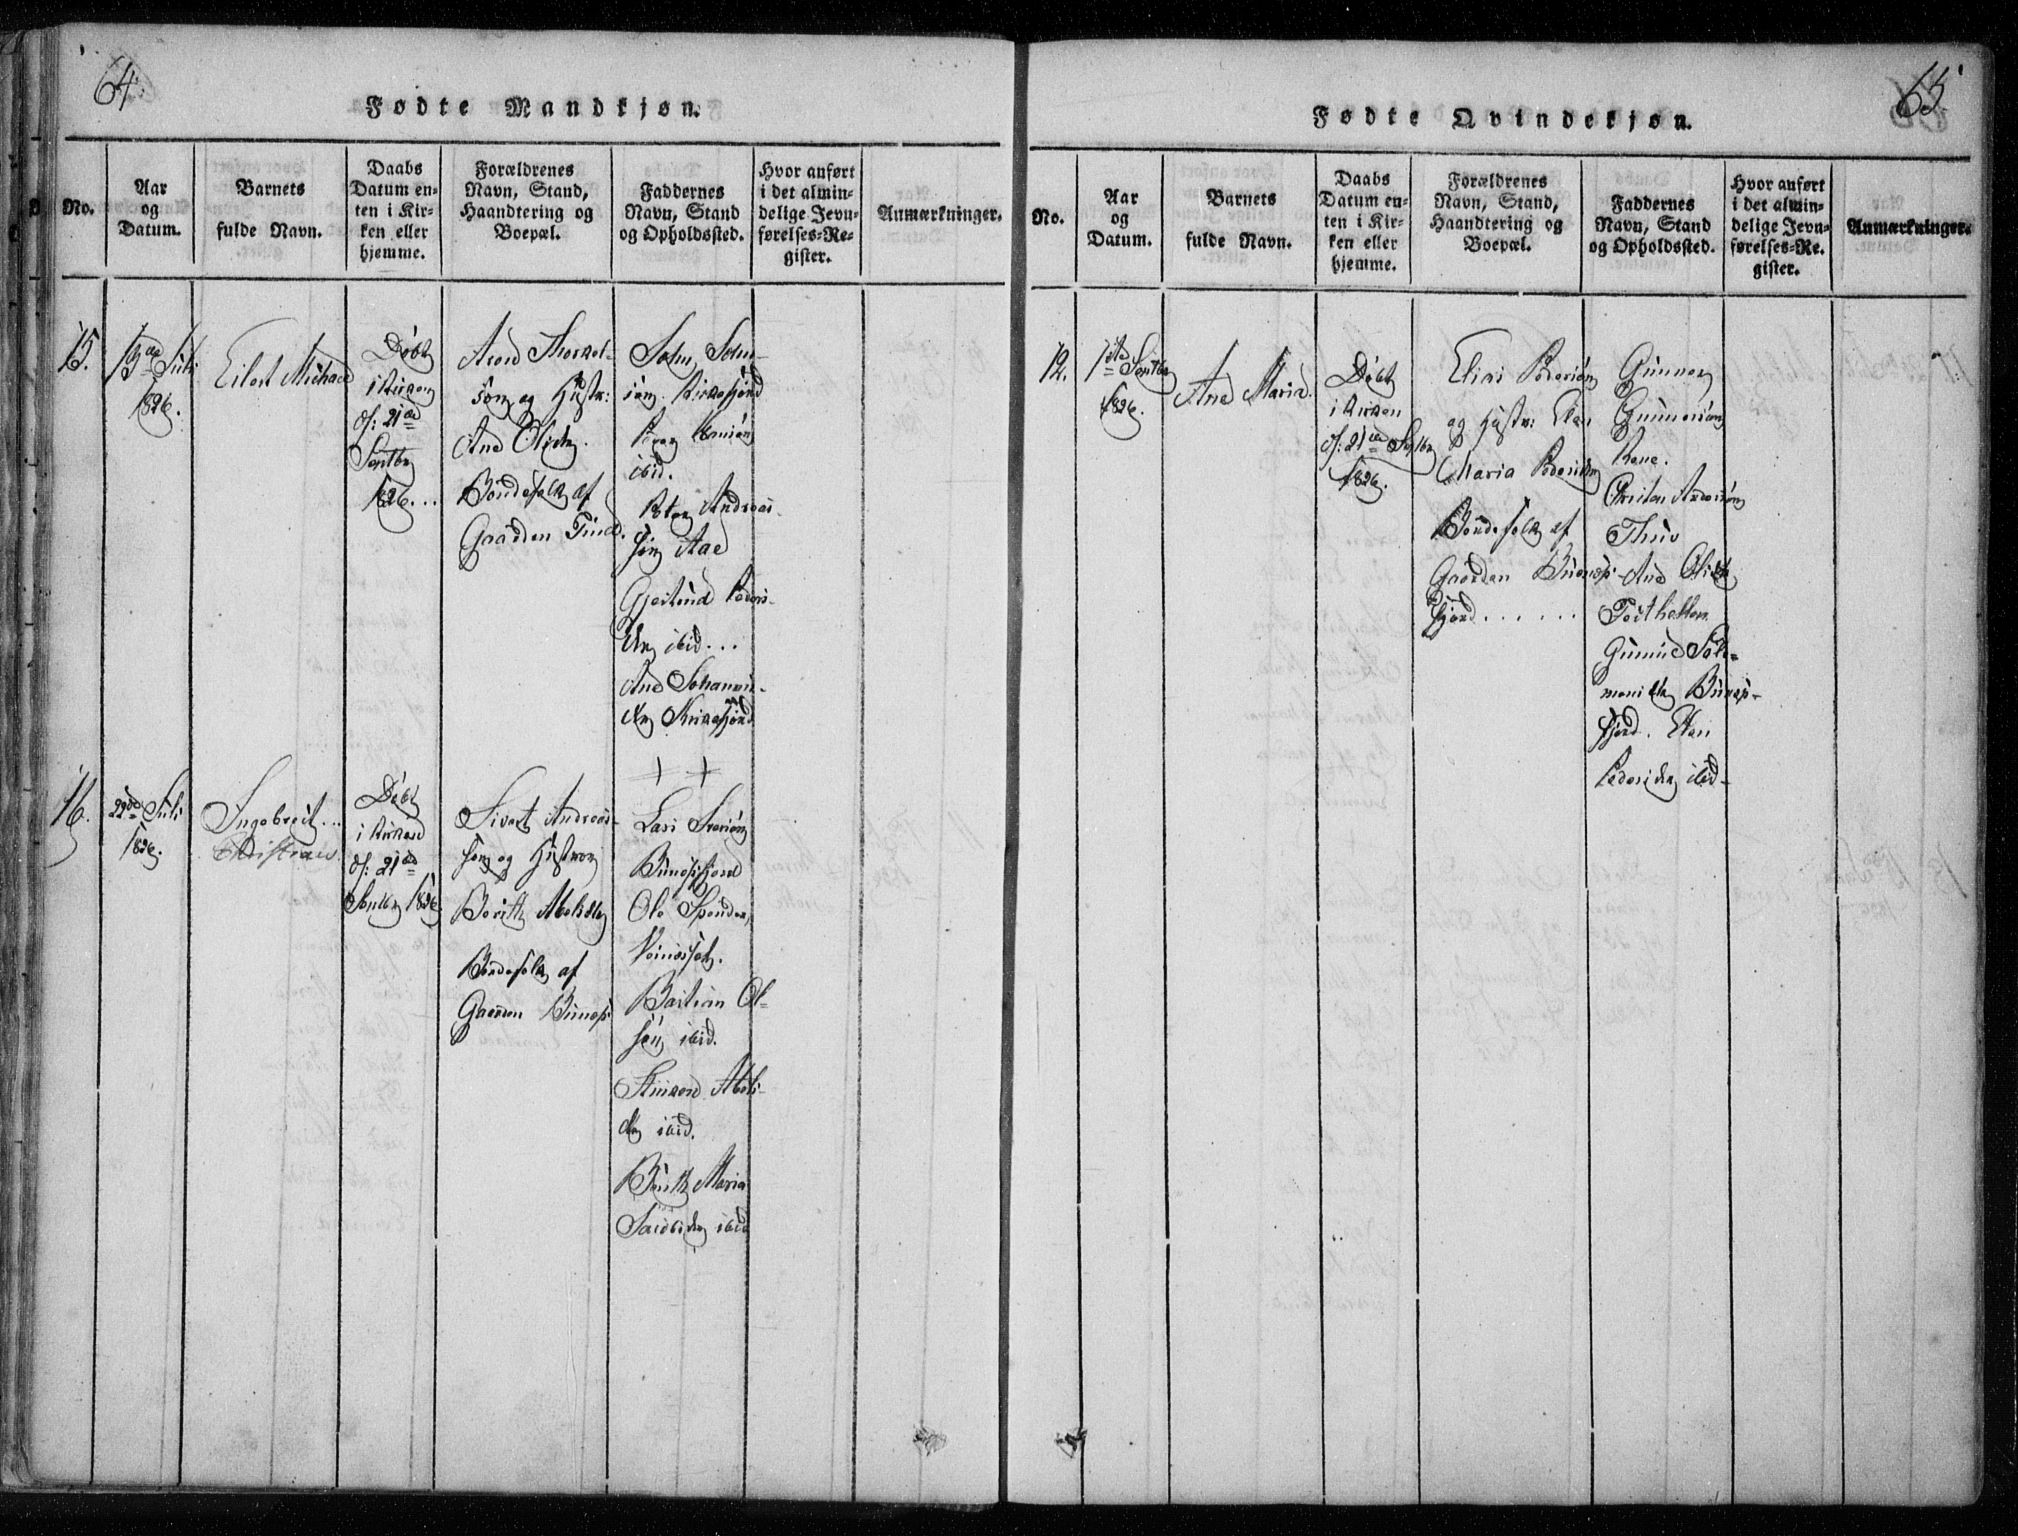 64.
Fødte Mandkjøn.
No.
Aar
og
Datum.
Barnets
fulde Navn.
Daabs
Datum en-
ten i Kir-
ken eller
hjemme.
Forældrenes
Navn, Stand,
Haandtering og
Boepæl.
Faddernes
Navn, Stand
og Opholdssted.
Hvor anført
i det almin-
delige Jevn-
førelses-Re-
gister.
Anmærkninger.
15.
Juli
1826.
Eilert Michael
Døbt
i Kirken
d: 21de
Septbr
1826...
Arend Thorkel-
søn og Hustr:
Ane Olsdtr.
Bøndefolk af
Gaarden Tind.
John John-
søn Kirkefjord
ibid.
Peter Andreas
søn Aae
Gjertrud Peders-
dtr ibid...
Ane Johannes-
dtr Kirkefjord
16.
22de Juli
1826.
Ingebreit..
Christian
Døbt
i Kirken
d: 21de
Septbr 1826
Sivert Andreas-
søn og Hustroe
Berith Abelsdtr
Bøndefolk af
Gaarden Bunes
+ +
Lars Iversøn
Bunesfjord
Ole
Bastian Ol-
søn ibid.
Abels-
dtr ibid.
Berith Maria
Jacobsdtr ibid
65
Fødte Qvindekjøn.
No.
Aar
og
Datum.
Barnets
fulde Navn.
Daabs
Datum en-
ten i Kir-
ken eller
hjemme.
Forældrenes
Navn, Stand,
Haandtering og
Boepæl.
Faddernes
Navn, Stand
og Opholdssted.
Hvor anført
i det almin-
delige Jevn-
førelses-Re-
gister.
Anmærkninger.
12.
1ste Septbr
1826.
Ane Maria.
Døbt
i Kirken
d: 21de Septbr
1826.
Elias Pedersøn
og Hustr: Elen
Maria Pedersdtr
Bøndefolk af
Gaarden Bunes-
fjord......
Gunner
Gunnersøn
Rene.
Ane Olsdtr
Gunnild Salo-
monsdtr Bunes-
fjord. Elen
Pedersdtr ibid-